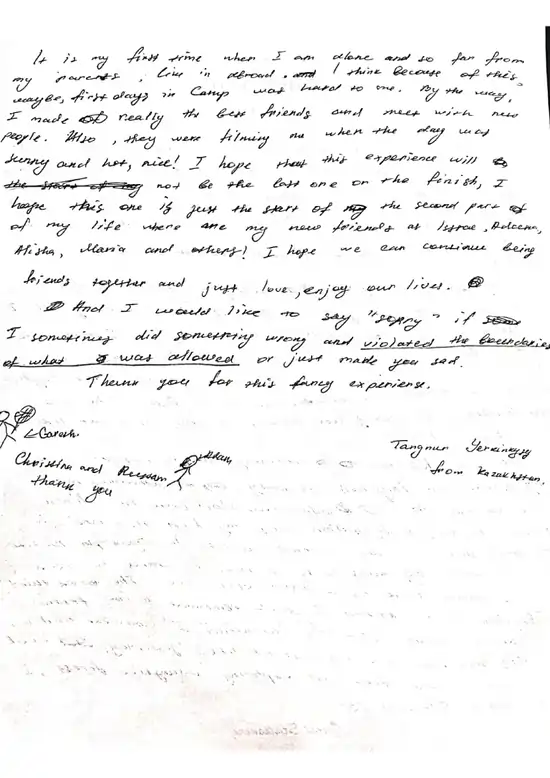 It is my first time when I am alone and so far from
my parents, live in abroad. I think because of this
maybe, first days in Camp was hard to me. By the way,
I made really the best friends and meet with new
people. Also, they were filming me when the day was
sunny and hot, nice! I hope that this experience will
the start of my not be the last one or the finish, I
hope this one is just the start of my the second part of
of my life where are my new friends as Israe,
Alisha, Maria and others! I hope we can continue being
friends together and just love, enjoy our lives.
And I would like to say "sorry" if
I sometimes did something wrong and violated the boundaries
of what was allowed or just made you sad.
Thank you for this fancy experiense.
Christina and
thank you
Tangnur
from Kazakhstan.